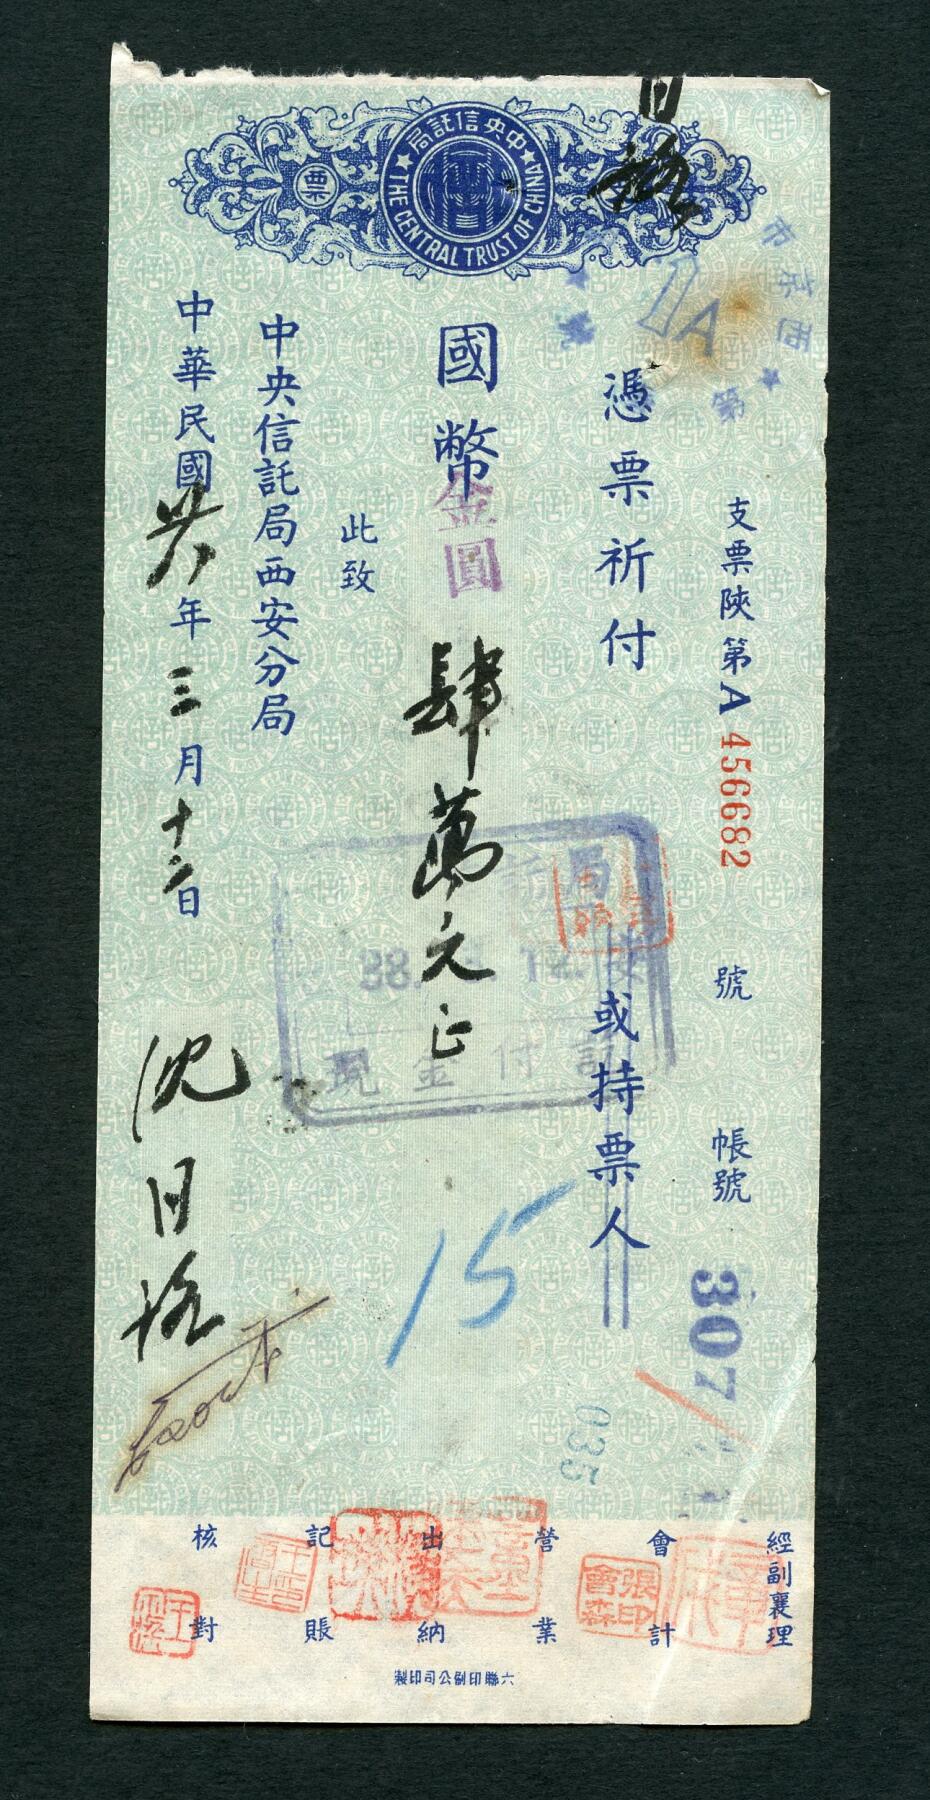 中央信託局
THE CENTRAL TRUST OF CHINA
票
支票陝第A456682號 帳號 307
憑票祈付 或持票人
國幣金圓肆萬元正
此致
中央信託局西安分局
中華民國卅八年三月十二日
沈日
現金付訖
15
035
經副襄理
會計
營業
出納
記賬
核對
張印會森
六聯印刷公司印製